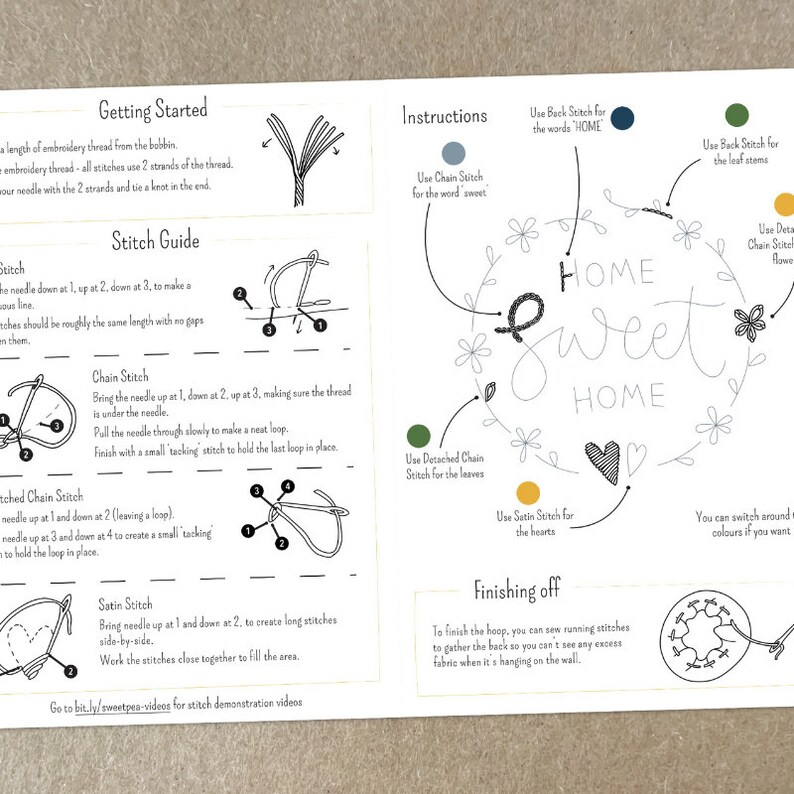 Getting Started
a length of embroidery thread from the bobbin.
embroidery thread - all stitches use 2 strands of the thread.
your needle with the 2 strands and tie a knot in the end.
Stitch Guide
Stitch
the needle down at 1, up at 2, down at 3, to make a
line.
should be roughly the same length with no gaps
2
3
1
Chain Stitch
Bring the needle up at 1, down at 2, up at 3, making sure the thread
is under the needle.
Pull the needle through slowly to make a neat loop.
Finish with a small 'tacking' stitch to hold the last loop in place.
1
3
2
Chain Stitch
needle up at 1 and down at 2 (leaving a loop).
needle up at 3 and down at 4 to create a small 'tacking'
to hold the loop in place.
3
4
1
2
Satin Stitch
Bring needle up at 1 and down at 2, to create long stitches
side-by-side.
Work the stitches close together to fill the area.
2
Go to bit.ly/sweetpea-videos for stitch demonstration videos
Instructions
Use Back Stitch for
the words 'HOME'
Use Back Stitch for
the leaf stems
Use Chain Stitch
for the word 'sweet'
Use
Chain Stitch
HOME
sweet
HOME
Use Detached Chain
Stitch for the leaves
Use Satin Stitch for
the hearts
You can switch around
colours if you want
Finishing off
To finish the hoop, you can sew running stitches
to gather the back so you can't see any excess
fabric when it's hanging on the wall.